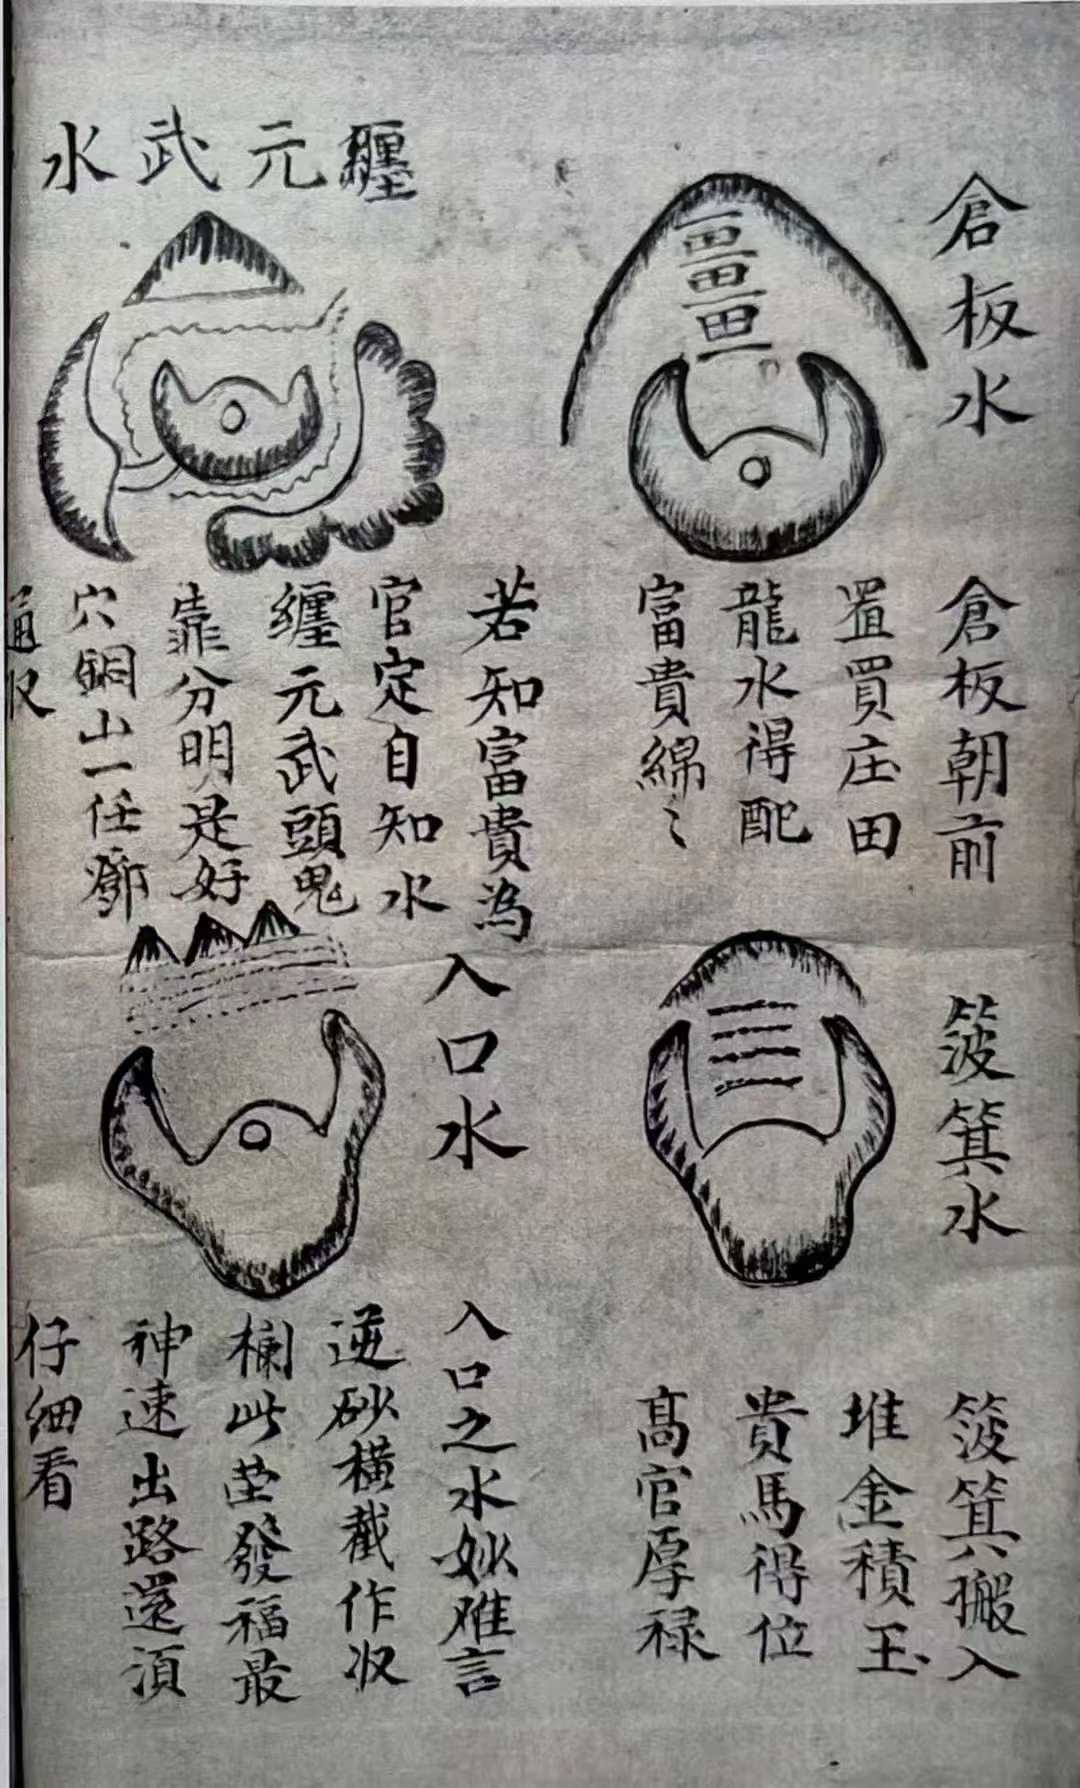 倉板水
倉板朝前
置買庄田
龍水得配
富貴綿〻
纒元武水
若知富貴為
官定自知水
纒元武頭鬼
靠分明是好
穴銅山一任鄧
通収
箥箕水
箥箕搬入
堆金積玉
貴馬得位
高官厚禄
入口水
入口之水妙难言
逆砂横截作収
欄此茔發福最
神速出路還湏
仔细看